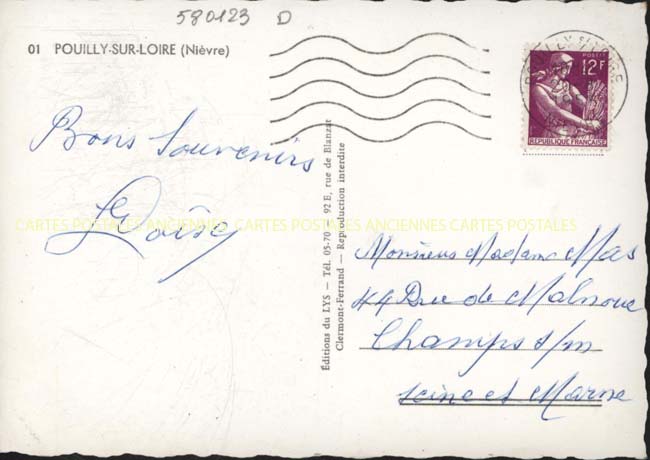 580123 D
01 POUILLY-SUR-LOIRE (Nièvre)
POSTES
12F
REPUBLIQUE FRANÇAISE
Bons Souvenirs
CARTES POSTALES ANCIENNES CARTES POSTALES ANCIENNES CARTES POSTALES
Éditions du LYS — Tél. 05-70 — 92 E, rue de Blanzat
Clermont-Ferrand — Reproduction interdite
Monsieur Madame Mas
44 Rue de Malnoue
Champs s/m
Seine et Marne